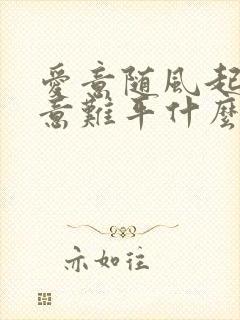 愛意随風起
意難平什麼
亦如往